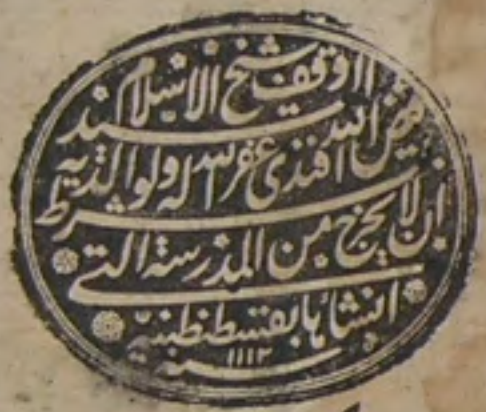 مما وقف شيخ الاسلام السيد
فيض الله افندى غفر الله له ولوالديه
بشرط ان لا يخرج من المدرسة التى
انشأها بقسطنطنية
سنه ١١١٢